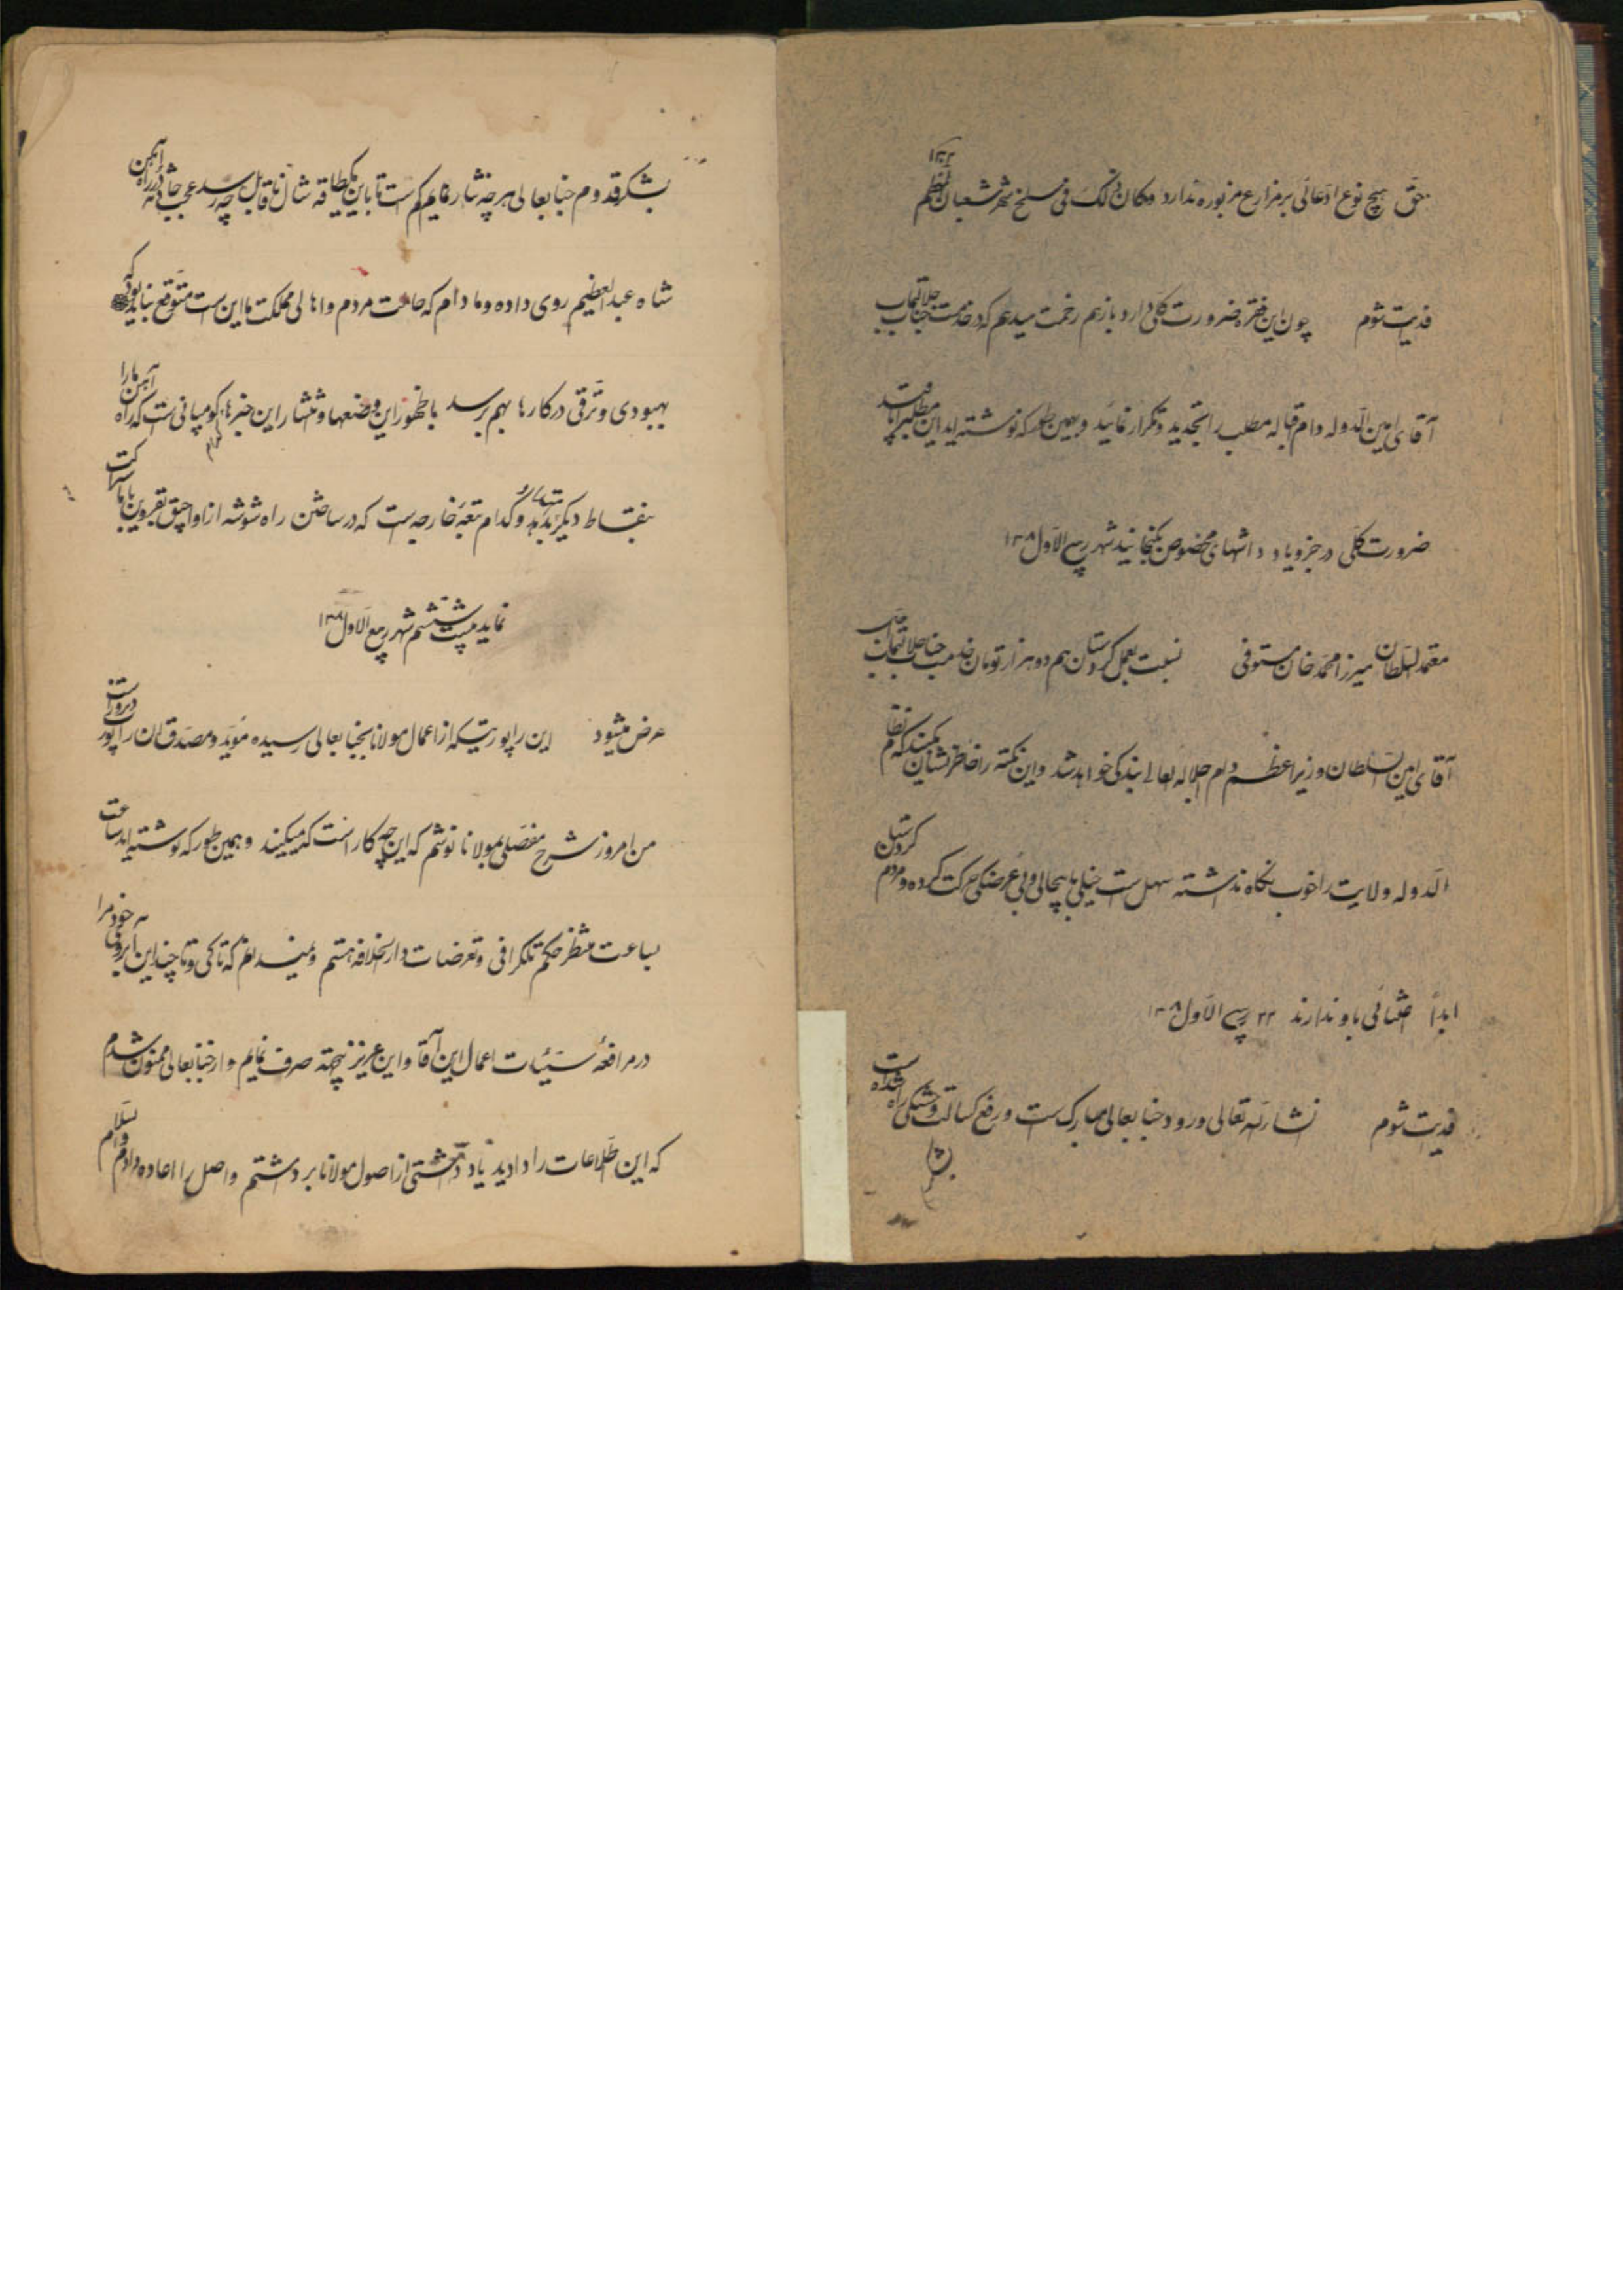 حق هیچ نوع ادعائی بر مزارع مزبوره ندارد و کان ذلک فی سلخ شهر شعبان المعظم
فدیت شوم چون این فقره ضرورت کلی دارد بازهم زحمت میدهم که در خدمت جناب جلالتمآب
آقای امین الدوله دام اقباله مطلب را تجدید و تکرار نمائید و بهمین طور که نوشته اید این مطلب را
ضرورت کلی در جزو یاد داشتهای مخصوص بگنجانید شهر ربیع الاول ۱۳۰۸
معتمد السلطان میرزا محمد خان مستوفی نسبت بعمل کردستان هم دو هزار تومان جناب جلالتمآب
آقای امین السلطان وزیر اعظم دام اجلاله العالی بندگی خواهد شد و این نکته را خاطرنشان بکنید که
الدوله ولایت را خوب نگاه نداشته سهل است خیلی باپچالی و بی عرضگی حرکت کرده و مردم کردستان
ابداً اعتنائی باو ندارند ۲۲ ربیع الاول ۱۳۰۸
فدیت شوم انشاءالله تعالی ورود جنابعالی مبارک است و رفع کسالت و خستگی راه شده است
بشکر
بشکر قدوم جنابعالی هر چه نثار نمایم کم است تا باین یکطاقه شال ناقابل چه رسد عجب حادثه در راه آهن
شاه عبدالعظیم روی داده و مادام که حالت مردم و اهالی مملکت ما این است متوقع نباید بود که
بهبودی و ترقی در کارها بهم برسد با ظهور این وضعها و انتشار این خبرها کدام کومپانی است که راه آهن ما را
بنقاط دیگر بدهد و کدام تبعه خارجه است که در ساختن راه شوسه از اواجق بقزوین با ما شراکت
نماید بیست ششم شهر ربیع الاول ۱۳۰۸
عرض میشود این راپورتیکه از اعمال مولانا بجنابعالی رسیده مؤید و مصدق آن راپورت دیروز است
من امروز شرح مفصلی بمولانا نوشتم که این چه کار است که میکنید و همین طور که نوشته اید ساعت
بساعت منتظر حکم تلگرافی و تعرضات دارالخلافه هستم و نمیدانم که تا کی و تا چند این آبروی خود را
در مرافعه سیئات اعمال این آقا و این عزیز بیجهة صرف نمایم و از جنابعالی ممنون شدم
که این اطلاعات را دادید یاد داشتی از اصول مولانا برداشتم و اصل را اعاده دادم والسلام